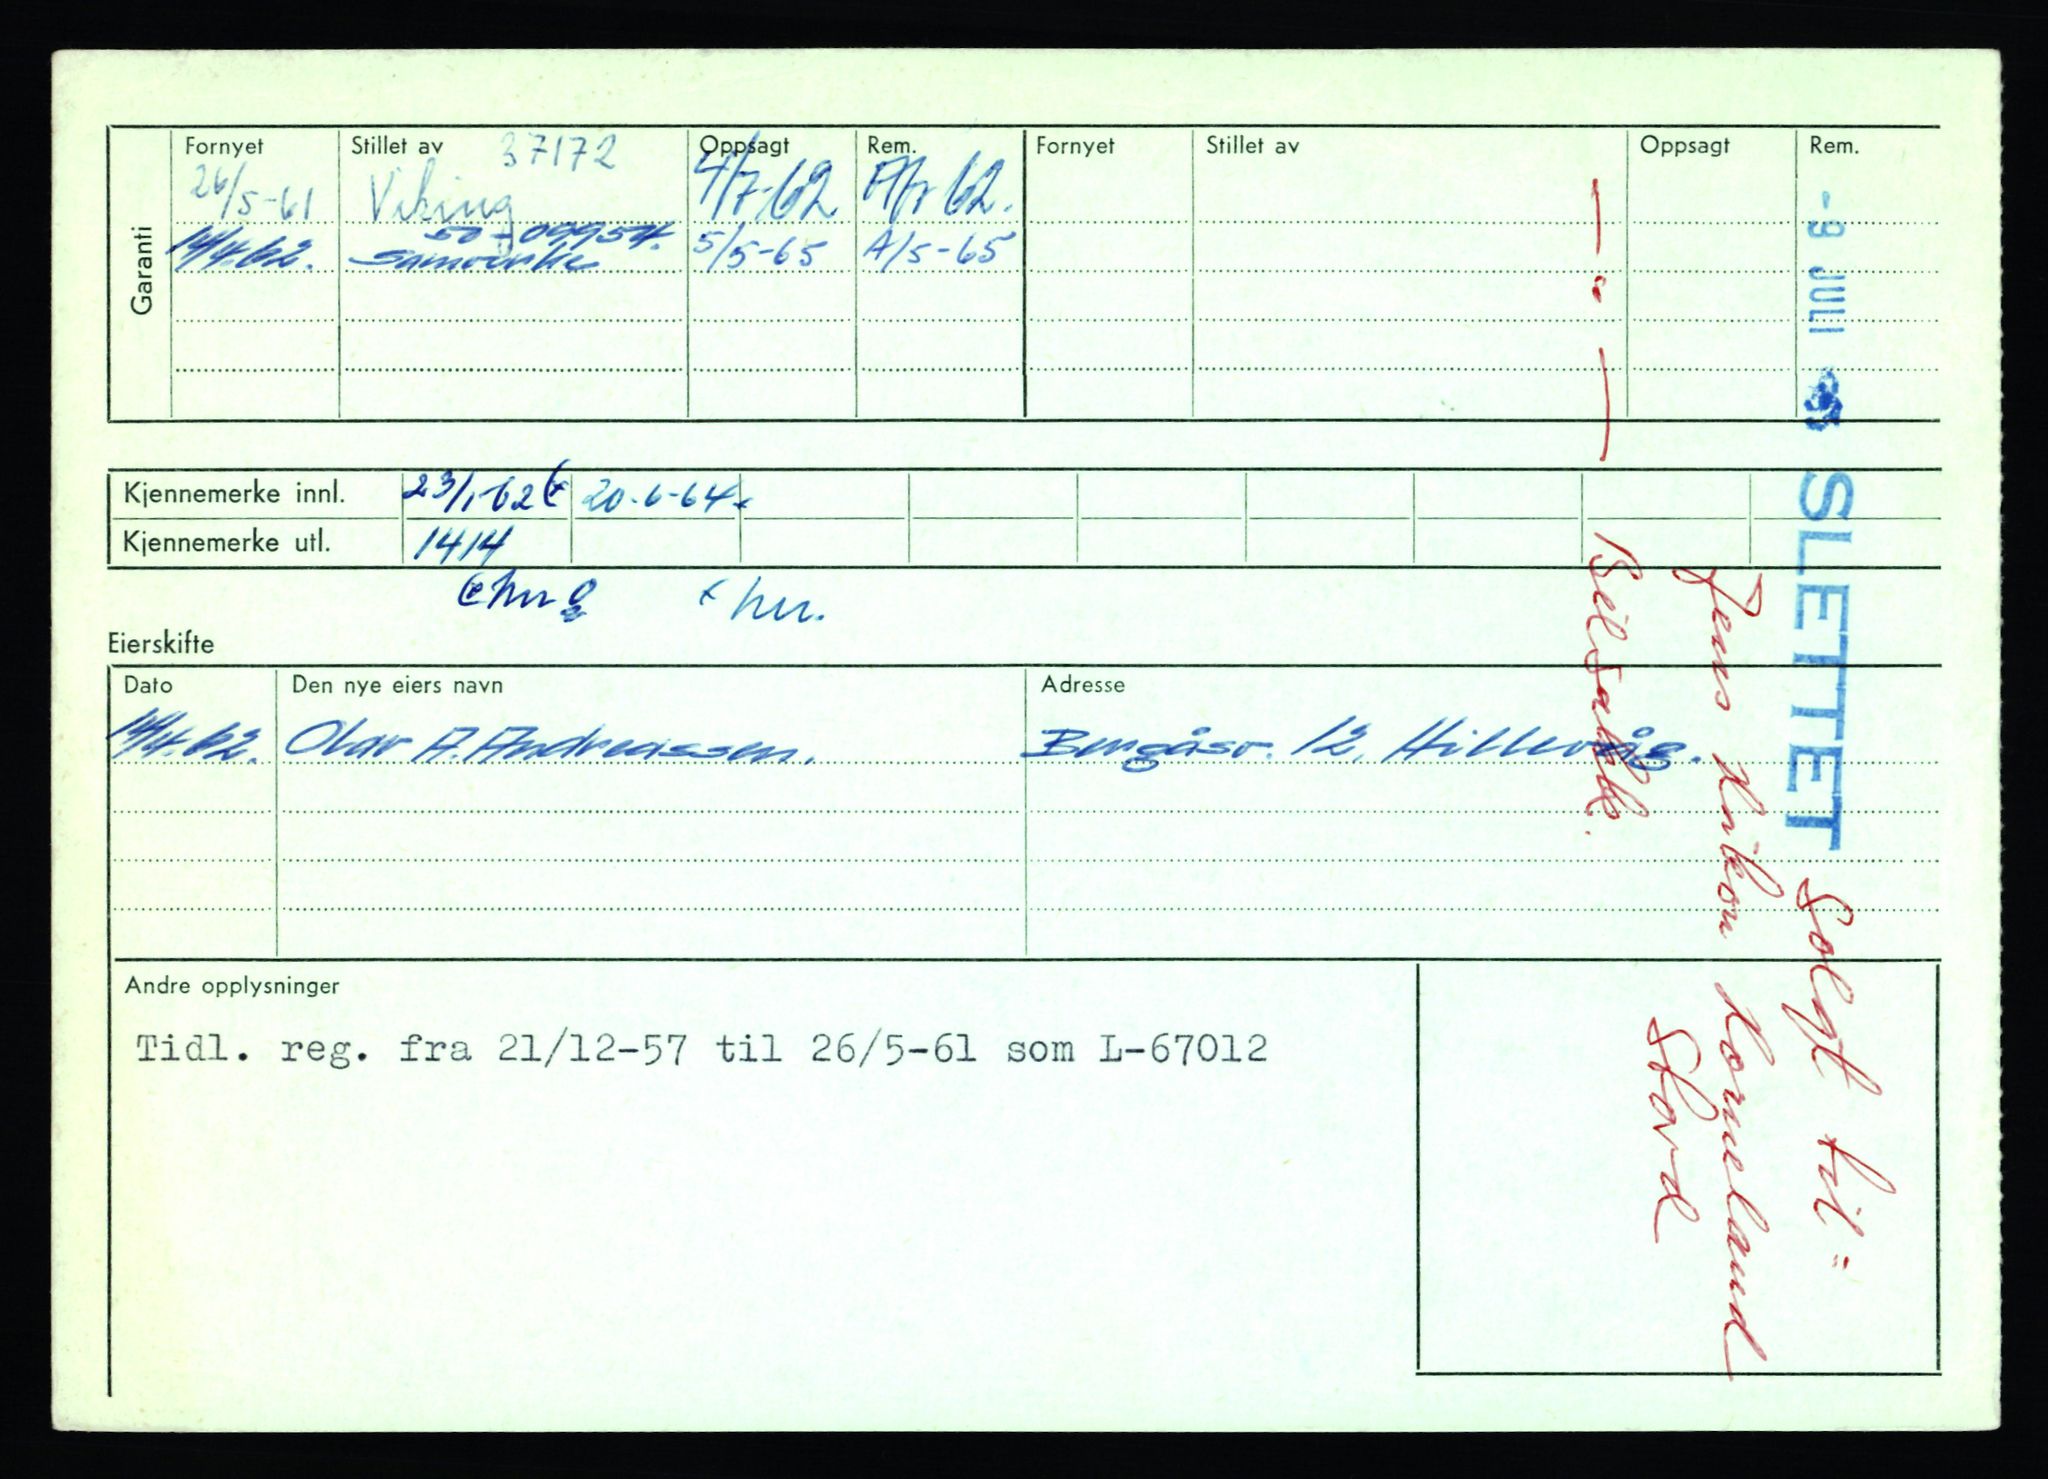 Garanti
Fornyet Stillet av 37172 Oppsagt Rem. Fornyet Stillet av Oppsagt Rem.
26/5-61 Viking 4/7-62
50-09954.
14/4.62. Samvirke 5/5-65 A/5-65
Kjennemerke innl. 23/1-62 20-6-64
Kjennemerke utl. 1414
Eierskifte
Dato Den nye eiers navn Adresse
14/4.62. Olav A. Andreassen. 12, Hillevåg.
Andre opplysninger
Tidl. reg. fra 21/12-57 til 26/5-61 som L-67012
-9 JULI
SLETTET Solgt til:
Jens Håkon Horneland
Stord
Bilsakk.